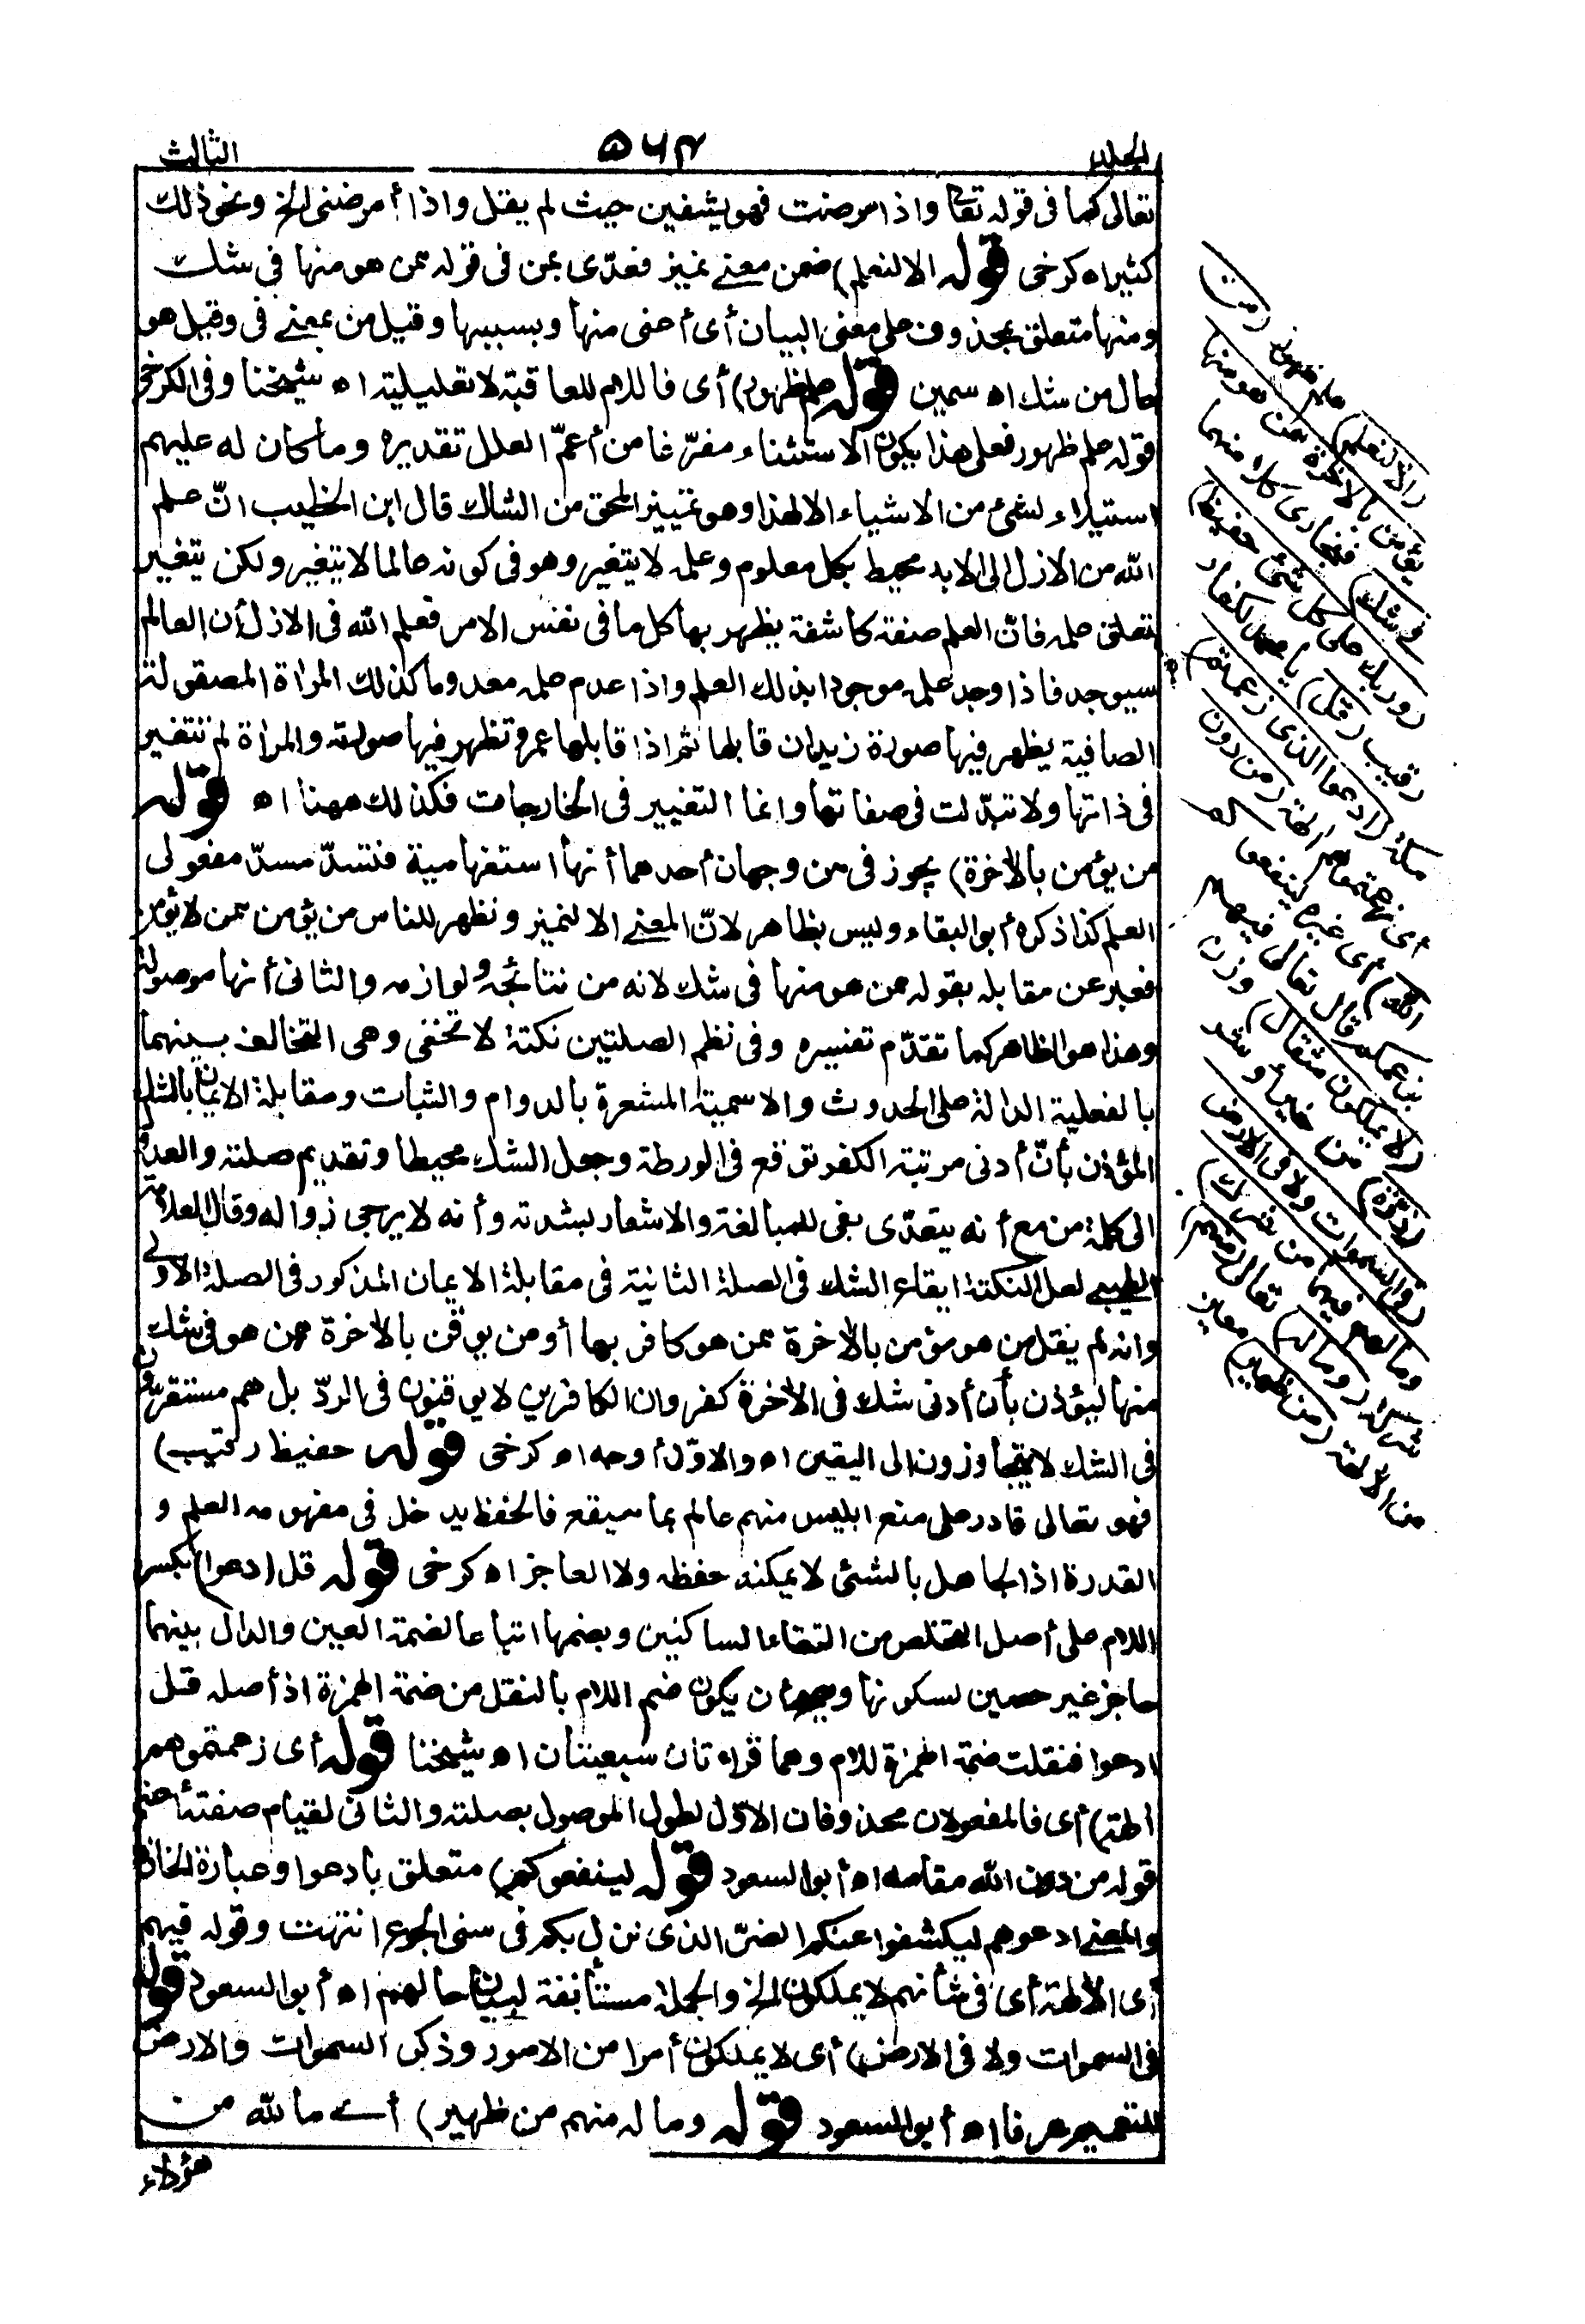 المجلد ٥٦٤ الثالث
تعالى كما فى قوله تعالى واذا مرضت فهو يشفين حيث لم يقل واذا أمرضنى الخ ونحو ذلك
كثير اه كرخى قوله الا لنعلم) ضمن معنى نميز فعدّى بمن فى قوله ممن هو منها فى شك
ومنها متعلق بمحذوف على معنى البيان أى أعنى منها وبسببها وقيل من بمعنى فى وقيل هو
حال من شك اه سمين قوله علم ظهور) أى فاللام للعاقبة لا تعليلية اه شيخنا وفى الكرخى
قوله علم ظهور فعلى هذا يكون الاستثناء مفرّغا من أعمّ العلل تقديره وما كان له عليهم
استيلاء لشئ من الاشياء الا لهذا وهو تمييز المحق من الشاك قال ابن الخطيب انّ علم
الله من الازل الى الابد محيط بكل معلوم وعلمه لا يتغير وهو فى كونه عالما لا يتغير ولكن يتغير
تعلق علمه فانّ العلم صفة كاشفة يظهر بها كل ما فى نفس الامر فعلم الله فى الازل أن العالم
سيوجد فاذا وجد علمه موجودا بذلك العلم واذا عدم علمه معدوما كذلك المرأة المصقولة
الصافية يظهر فيها صورة زيد ان قابلها ثم اذا قابلها عمرو تظهر فيها صورته والمرأة لم تتغير
فى ذاتها ولا تبدّلت فى صفاتها وانما التغيير فى الخارجات فكذلك ههنا اه قوله
من يؤمن بالأخرة) يجوز فى من وجهان أحدهما أنها استفهامية فتسدّ مسدّ مفعولى
العلم كذا ذكره أبو البقاء وليس بظاهر لانّ المعنى الا لنميز ونظهر للناس من يؤمن ممن لا يؤمن
فعبر عن مقابله بقوله ممن هو منها فى شك لانه من نتائجه ولوازمه والثانى أنها موصولة
وهذا هو الظاهر كما تقدّم تفسيره وفى نظم الصلتين نكتة لا تخفى وهى التخالف بينهما
بالفعلية الدالة على الحدوث والاسمية المشعرة بالدوام والثبات ومقابلة الايمان بالشك
المؤذن بأنّ أدنى مرتبة الكفر توقع فى الورطة وجعل الشك محيطا وتقديم صلته والعدول
الى كلمة من مع أنه يتعدّى بفى للمبالغة والاشعار بشدته وأنه لا يرجى زواله وقال العلامة
الطيبى لعل النكتة ايقاع الشك فى الصلة الثانية فى مقابلة الايمان المذكور فى الصلة الاولى
وانه لم يقل من هو مؤمن بالأخرة ممن هو كافر بها أو من يوقن بالأخرة ممن هو فى شك
منها ليؤذن بأن أدنى شك فى الأخرة كفر وان الكافرين لا يوقنون فى الردّ بل هم مستقرون
فى الشك لا يتجاوزون الى اليقين اه والاوّل أوجه اه كرخى قوله حفيظ رقيب)
فهو تعالى قادر على منع ابليس منهم عالم بما سيقع فالحفظ يدخل فى مفهومه العلم و
القدرة اذ الجاهل بالشئ لا يمكنه حفظه ولا العاجز اه كرخى قوله قل ادعوا) بكسر
اللام على أصل التخلص من التقاء الساكنين وبضمها اتباعا لضمة العين والدال بينهما
حاجز غير حصين لسكونها ويجوز أن يكون ضم اللام بالنقل من ضمة الهمزة اذ أصله قل
ادعوا فنقلت ضمة الهمزة للام وهما قراءتان سبعيتان اه شيخنا قوله أى زعمتموهم
ألهة) أى فالمفعولان محذوفان الاوّل لطول الموصول بصلته والثانى لقيام صفته أعنى
قوله من دون الله مقامه اه أبو السعود قوله لينفعوكم) متعلق بادعوا وعبارة الخازن
والمعنى ادعوهم ليكشفوا عنكم الضرّ الذى نزل بكم فى سنى الجوع انتهت وقوله فيهم
أى الألهة أى فى شأنهم لا يملكون الخ والجملة مستأنفة لبيان حالهم اه أبو السعود قوله
فى السموات ولا فى الارض) أى لا يملكون أمرا من الامور وذكر السموات والارض
للتعميم عرفا اه أبو السعود قوله وما له منهم من ظهير) أى ما لله من
هؤلاء
(الا لنعلم) علم ظهور (من
يؤمن بالأخرة ممن هو منها
فى شك) فنجازى كلا منهما
(وربك على كل شئ حفيظ)
رقيب (قل) يا محمد لكفار
مكة (ادعوا الذين زعمتم)
أى زعمتموهم ألهة (من دون
الله) أى غيره لينفعوكم
بزعمكم قال تعالى فيهم
(لا يملكون مثقال) وزن
(ذرّة) من خير أو شر
(فى السموات ولا فى الارض
وما لهم فيهما من شرك)
شركة (وما له) تعالى (منهم)
من الألهة (من ظهير) معين